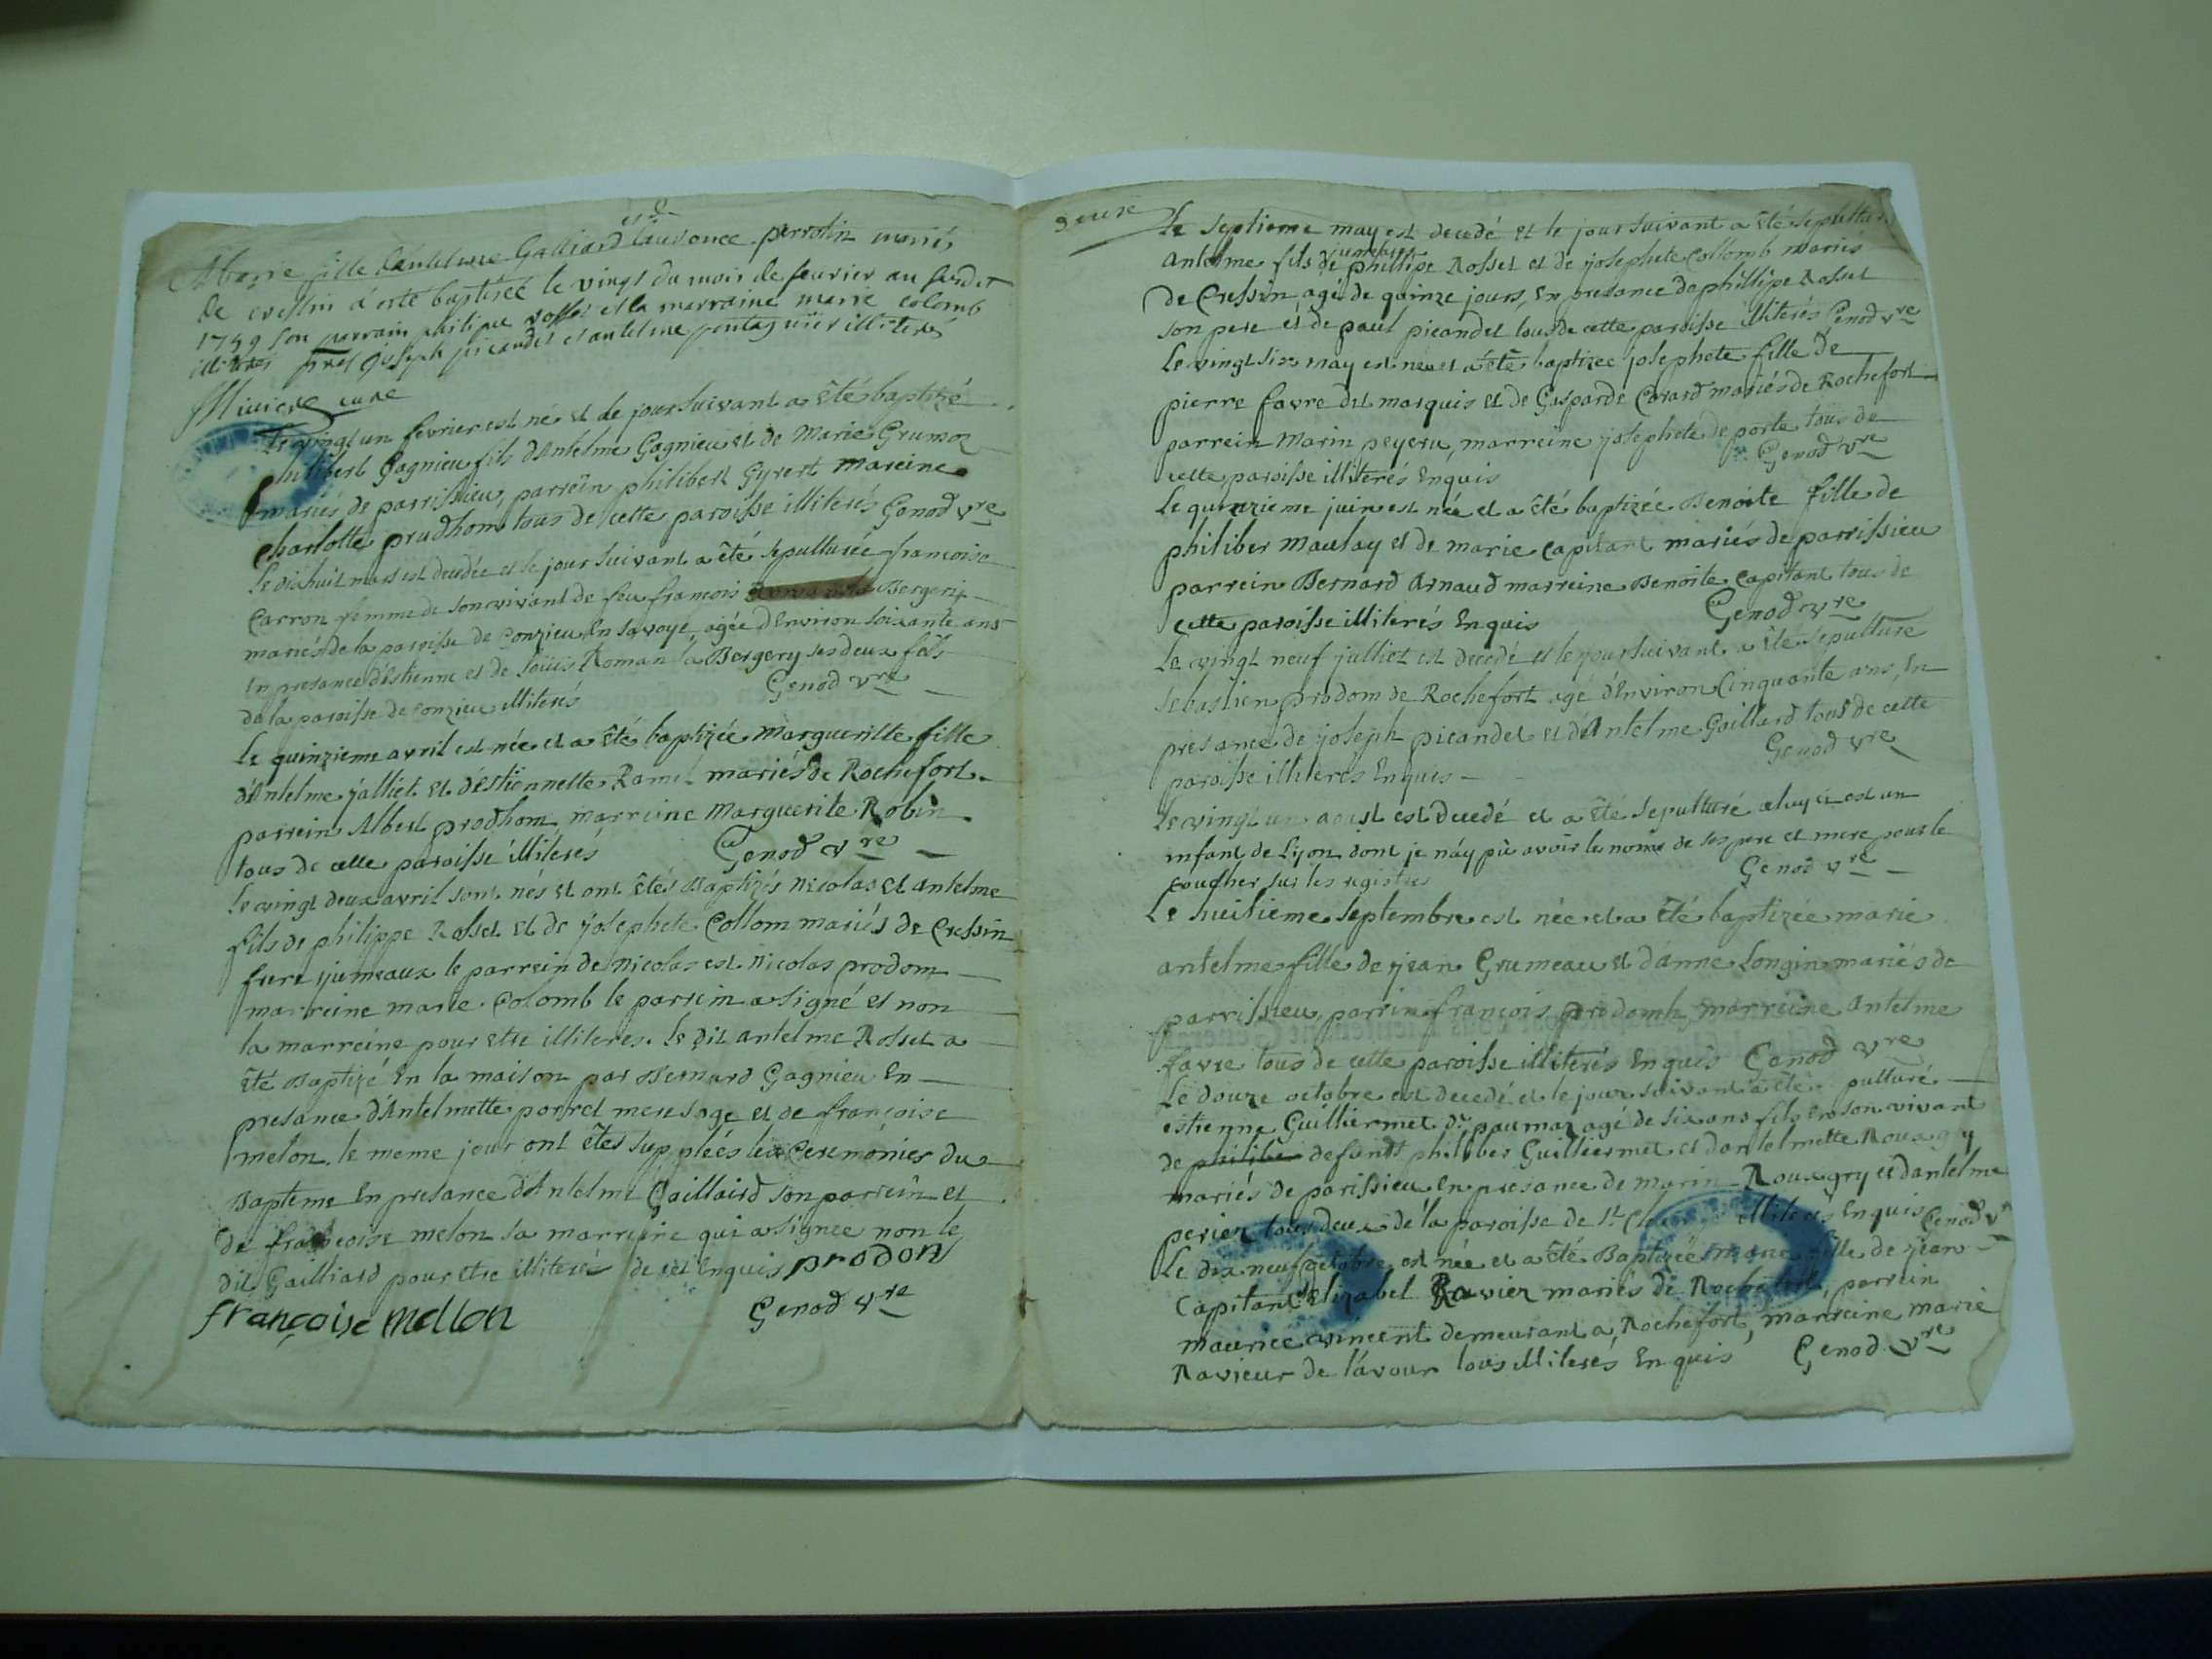 et
Marie fille dantelme Galliard laurence perrotin mariés
de cressin a esté baptisée le vingt du mois de feuvrier an susdit
1759 son parrain philipe rosset et la marraine marie colomb
illiteres joseph picandet et antelme illiterés
curé
Le vingt un fevrier est né et le jour suivant a êté baptizé
philibert Gagnieu fils d'Antelme Gagnieu et de Marie Grumoz
mariés de parrissieu, parrein philibert Gyrert mareine
charlotte prudhom tous de cette paroisse illiterés Genod vre
le dixhuit mars est decedée et le jour suivant a êté sepulturée francoise
Carron femme de son vivant de feu francois Bergery
mariés de la paroisse de Conzieu En Savoye, agée d'Environ soixante ans
En presance d'Estienne et de loüis Roman la Bergery ses deux fils
de la paroisse de conzieu illiterés Genod vre
le quinzieme avril est née et a êté baptizée Margueritte fille
d'Antelme jalliet et d'estiennette Ramel mariés de Rochefort
parrein Albert prodhom marreine Marguerite Robin
tous de cette paroisse illiterés Genod vre
le vingt deux avril sont nés et ont êtés Baptizés Nicolas et antelme
fils de philippe Rosset et de josephete Collom mariés de Cressin
frere jumeaux le parrein de nicolas est nicolas prodom
marreine marie Colomb le parrein a signé et non
la marreine pour etre illiteres. le dit antelme Rosset a
êté Baptizé En la maison par Bernard Gagnieu En
presance d'Antelmette porret mere sage et de françoise
melon. le meme jour ont êtes suppléés les Ceremónies du
Bapteme En presance d'Antelme Gaillaird son parrein et
de francoise melon sa marreine qui a signee non le
dit Gailliard pour etre illiteré de ce Enquis prodon
françoise mellon Genod vre
deuxe
Le septieme may est decedé et le jour suivant a êté sepulturé
jumeau
antelme fils de phillipe Rosset et de josephete Collomb mariés
de Cressin, agé de quinze jours, En presance de phillipe Rosset
son pere et de paul picandet tous de cette paroisse illiterés Genod vre
Le vingt six may est nee et a êté baptizee josephete fille de
pierre favre dit marquis et de Gasparde Cavard mariés de Rochefort
parrein Marin peyeru, marreine josephete de porte tous de
cette paroisse illiterés Enquis Genod vre
Le quinzieme juin est née et a êté baptizée Benoite fille de
philiber Maulay et de marie Capitant mariés de parrissieu
parrein Bernard Arnaud marreine Benoite Capitant tous de
cette paroisse illiterés Enquis Genod vre
Le vingt neuf julliet est decedé et le jour suivant a êté sepulturé
sebastien prodom de Rochefort agé d'Environ Cinquante ans, En
presance de joseph picandet et d'Antelme Gaillard tous de cette
paroisse illiterés Enquis Genod vre
Le vingt un aoust est decedé et a êté sepulturé celuy ci est un
enfant de Lyon dont je n'ay pû avoir les noms de ses pere et mere pour le
coucher sur les registres Genod vre
Le huitieme septembre est née et a êté baptizée marie
antelme fille de jean Grumeau et d'anne Longin mariés de
parrissieu, parrin françois prodomh marreine antelme
favre tous de cette paroisse illiterés Enquis Genod vre
Le douze octobre est decedé et le jour suivant a êté pulturé
estienne Guilliermet dt paumaz agé de six ans fils en son vivant
de philiber defundt philiber Guilliermet et dantelmette Rouxgry
mariés de parissieu En presance de marin Rouxgry et dantelme
perier tous deux de la paroisse de St illiterés Enquis Genod vre
Le dix neuf octobre est née et a êté Baptizée fille de jean
Capitan et Elizabet Ravier mariés de Rochefort, parrein
maurice vincent demeurant a Rochefort, marreine marie
Ravieur de lavour tous illiterés Enquis Genod vre